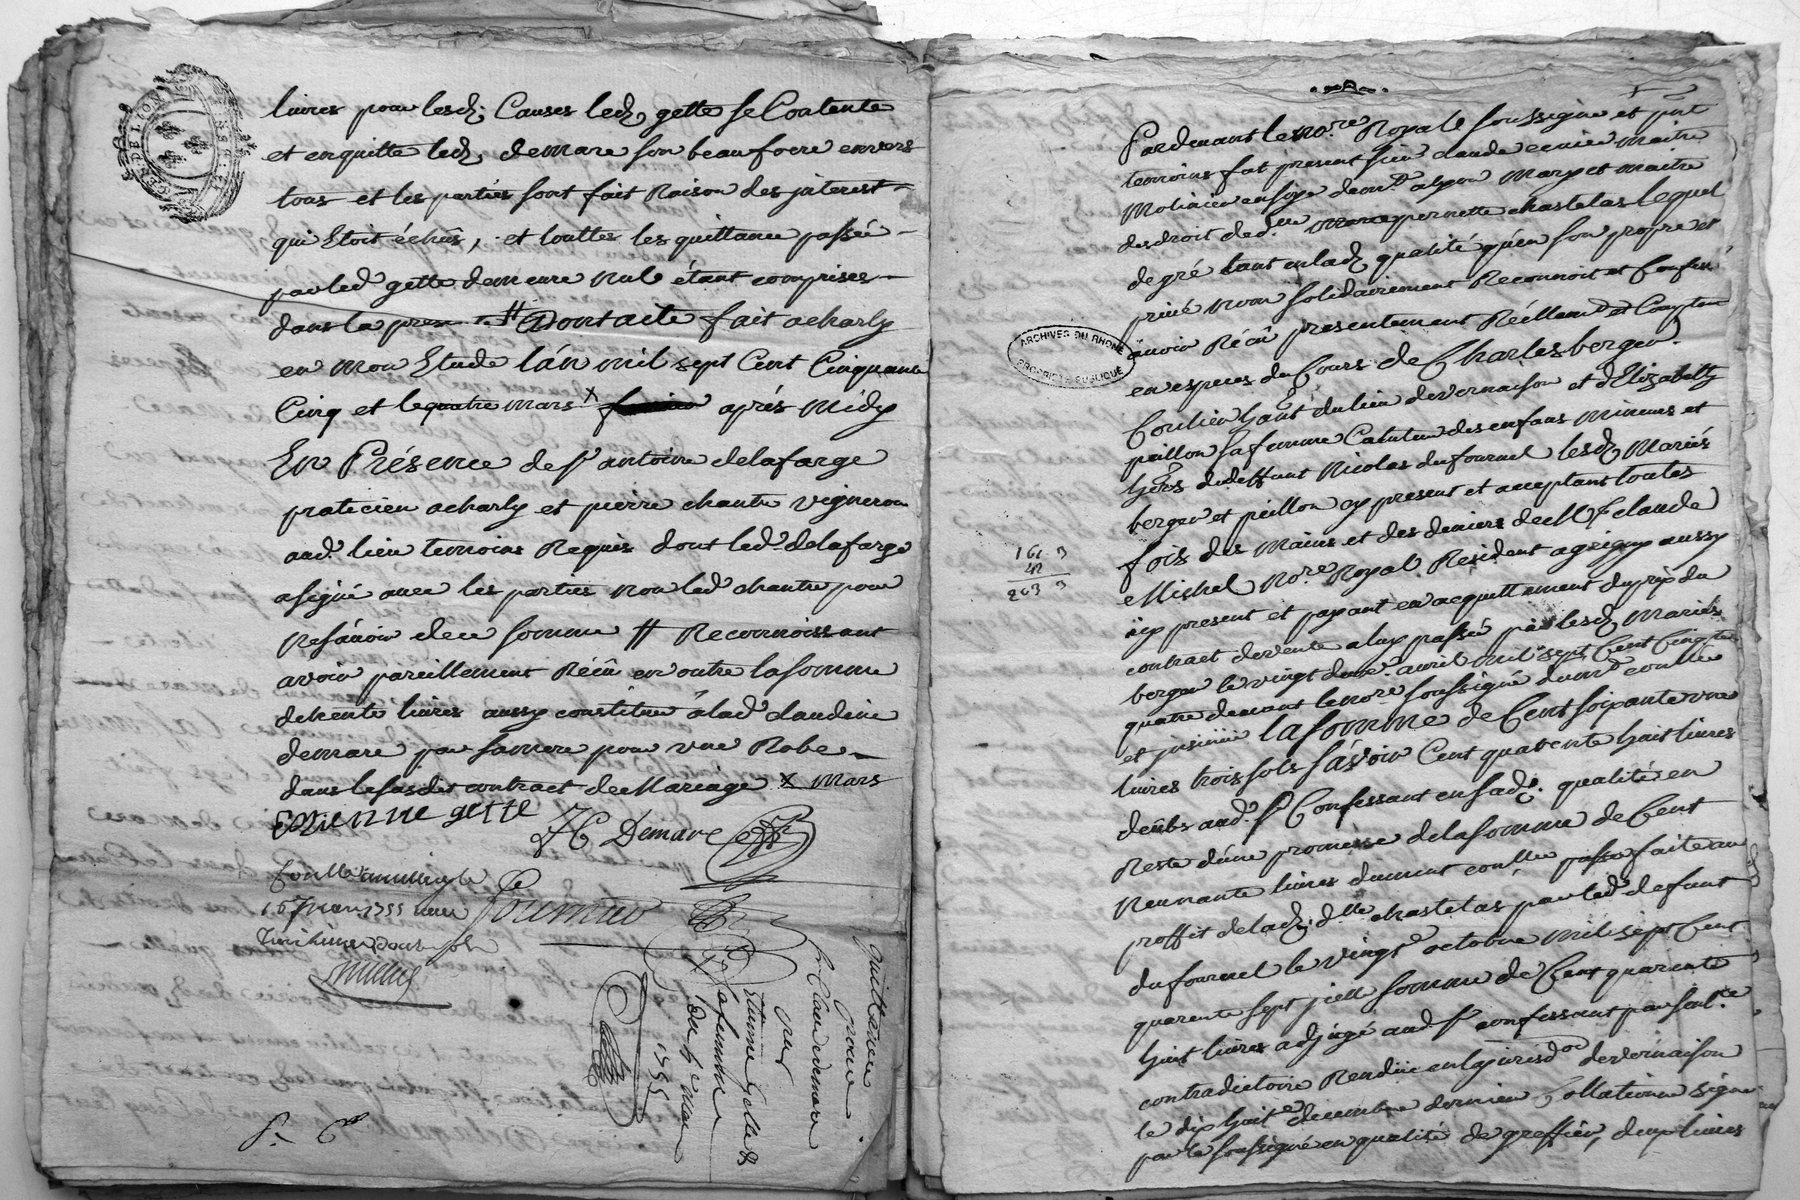 GEN DE LION
livres pour lesd. Causes led. gette se Contente
et enquitte led. demare son beaufrere envers
tous et les parties sont fait Raison des jnterest
qui Etoit échûs, et touttes les quittance passée
par led. gette demeure nul étant comprises
dans la presente # Dont acte fait acharly
en mon Etude lán mil sept Cent Cinquante
Cinq et le quatre mars x après Midy
En Présence de sr antoine delafarge
praticien acharly et pierre chantre vigneron
aud. lieu temoins Requis dont led. delafarge
asigné avec les parties non led chantre pour
ne sávoir de ce sommé # Reconnoissant
avoir pareillement Récû en outre la somme
detrente livres aussy constituée á lad. Claudine
demare par samere pour une Robe
dans lesusdit contract de Mariage x mars
etienne gette
JC Demare
Conllé
16 mars 1755
Fournier
quittance
pour
sr Claude demare
par
Etienne gette &
sa femme
du 4e mars
1755
Pardevant le nore Royale soussigné et pnt
temoins fut present sieur claude maitre
alyon mary et maitre
des droit de de pernette chastelas lequel
de gré tant en lad. qualité qu'en son propre et
privé nom solidairement Reconnoit et Confesse
ávoir Récû presentement Réellemt et Comptant
en especes du Cours de Charles berger
habt du lieu devernaison et d'Elizabeth
peillon sa femme des enfans mineurs et
hers dedeffunt Nicolas dufournel lesd. Mariés
berger et peillon cy present et acceptant toutes
fois des mains et des deniers de Me claude
Michel Nore Royal Resident agrigny aussy
icy present et payant en acquittement du prix du
contract devente aluy passée par lesd. Mariés
berger le vingt avril mil sept Cent Cinqte
quatre devant le nore soussigné
et jnsinué la somme de Cent soixante une
livres trois sols sávoir Cent quarente huit livres
deûes aud. sr Confessant en sad. qualité en
Reste d'une promesse delasomme de Cent
Nonnante livres passée faite au
proffit delad. dlle chastelas par led. defunt
dufournel le vingt octobre mil sept Cent
quarente sept somme de Cent quarente
huit livres adjugé aud sr confessant par sentce
contradictoire Rendue en la jurisdon devernaison
le dix huite decembre dernier Collationné signé
par le soussigné en qualité de greffier, deux livres
ARCHIVES DU RHONE
PROPRIETE PUBLIQUE
161 3
42
203 3